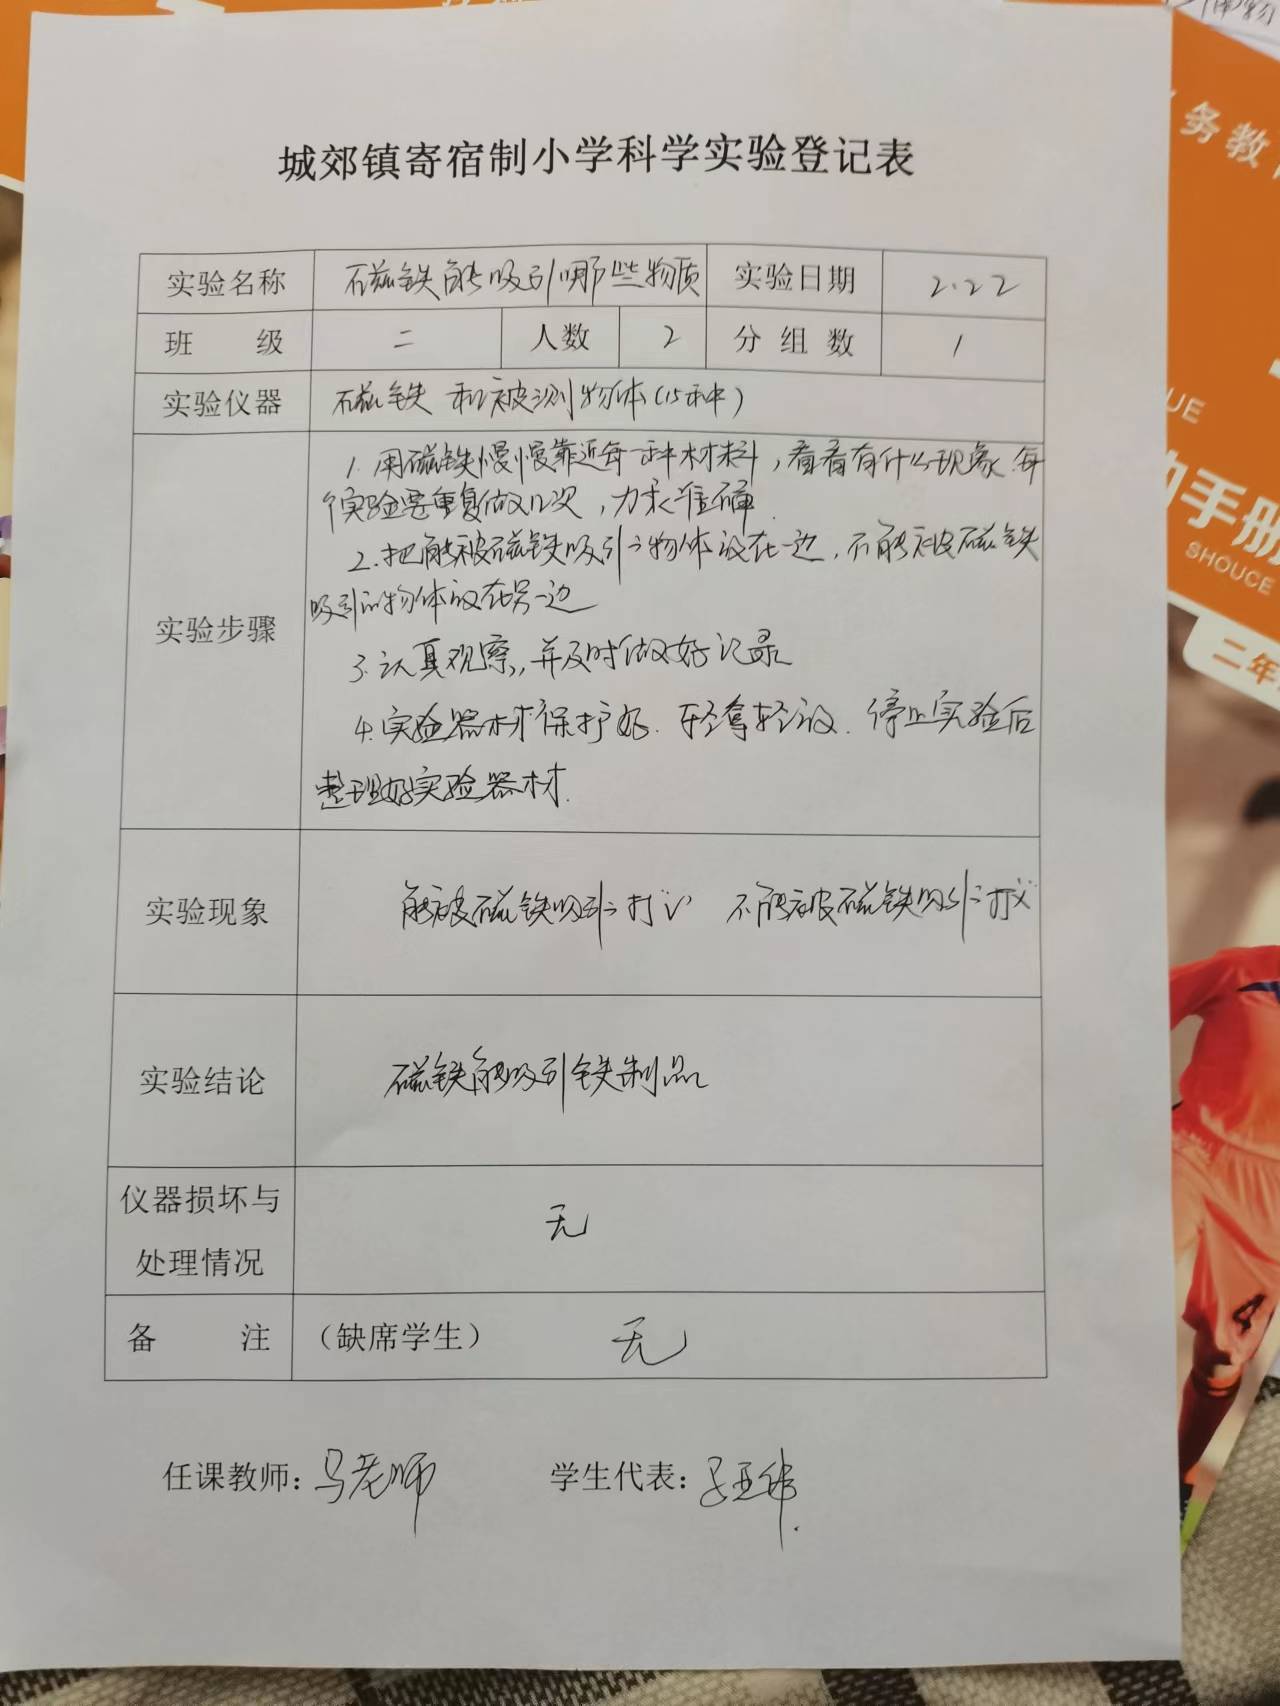 城郊镇寄宿制小学科学实验登记表
实验名称 磁铁能吸引哪些物质 实验日期 2.22
班 级 二 人数 2 分组数 1
实验仪器 磁铁 和被测物体(15种)
实验步骤
1. 用磁铁慢慢靠近每一种材料,看看有什么现象.每
个实验要重复做几次,力求准确.
2.把能被磁铁吸引的物体放在一边,不能被磁铁
吸引的物体放在另一边
3.认真观察,并及时做好记录
4.实验器材保护好.轻拿轻放.停止实验后
整理好实验器材.
实验现象 能被磁铁吸引的打“√” 不能被磁铁吸引的打“×”
实验结论 磁铁能吸引铁制品
仪器损坏与
处理情况 无
备 注 (缺席学生) 无
任课教师: 马老师 学生代表:
务教
UE
手册
SHOUCE
二年
4